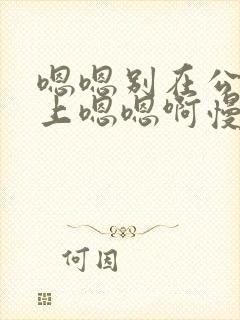 嗯嗯别在公
上嗯嗯啊慢
何因